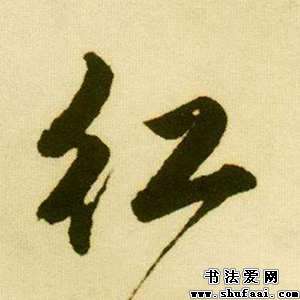 红
书法爱网
www.shufaai.com